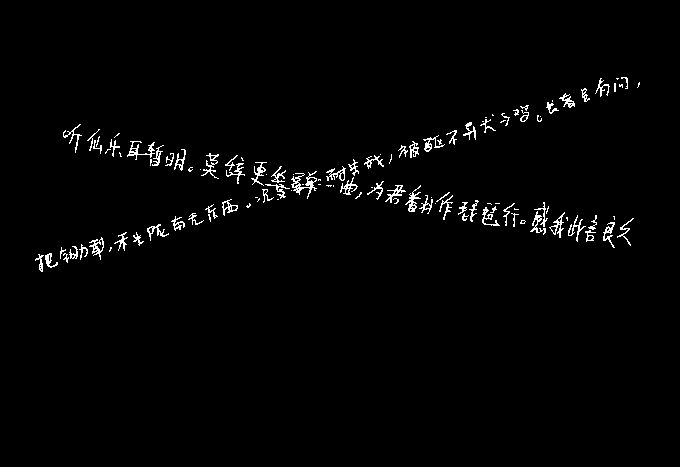 听仙乐耳暂明。莫辞更坐弹一曲,为君翻作琵琶行。感我此言良久
把锄犁,禾生陇亩无东西。况复秦兵耐苦战,被驱不异犬与鸡。长者虽有问,